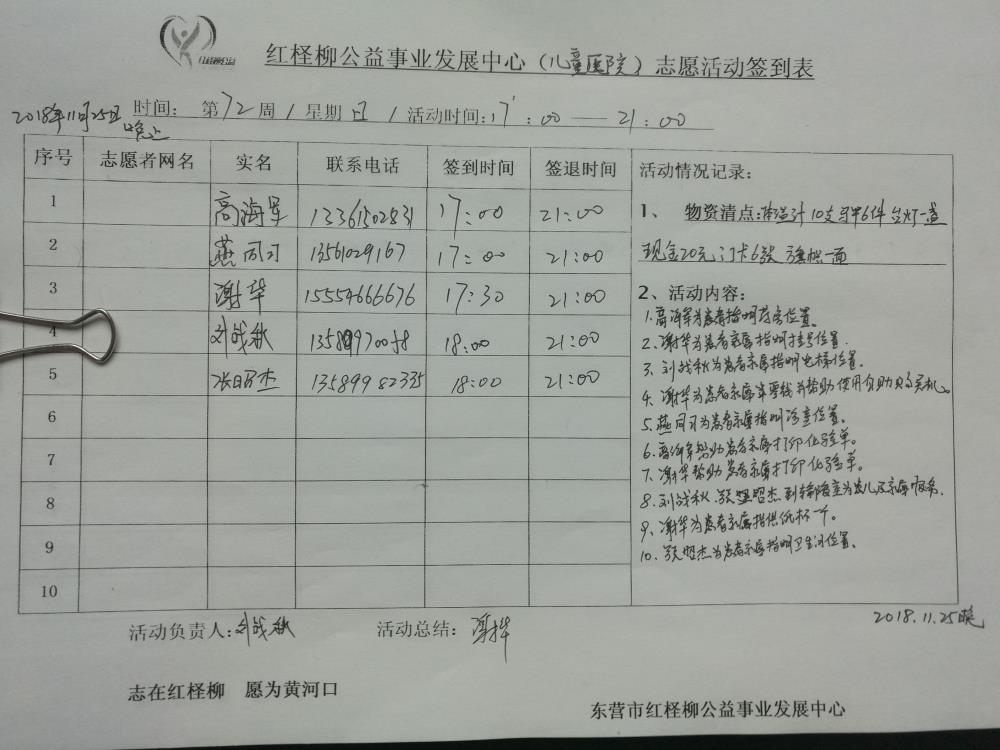 红柽柳公益
红柽柳公益事业发展中心（儿童医院）志愿活动签到表
2018年11月25日 时间： 第72周 / 星期日 / 活动时间：17：00 — 21：00
晚上
序号 志愿者网名 实名 联系电话 签到时间 签退时间 活动情况记录：
1 高海军 13361502831 17:00 21:00
1、 物资清点：体温计10支 马甲6件 台灯一盏
2 燕同习 13561029167 17:00 21:00
现金20元 门卡6张 旗帜一面
3 谢华 15554666676 17:30 21:00
2、活动内容：
4 刘战秋 18:00 21:00
5 13589982335 18:00 21:00
6
7
8
9
10
1.高海军为患者指明位置。
2.谢华为患者家属指明挂号位置.
3.刘战秋为患者家属指明电梯位置.
4.谢华为患者家属零钱并帮助使用自助购买机。
5.燕同习为患者家属指明诊室位置。
6.高海军帮助患者家属打印化验单。
7.谢华帮助患者家属打印化验单。
8.刘战秋.到输液室为患儿及家属服务.
9.谢华为患者家属提供纸杯一个。
10.为患者家属指明卫生间位置.
活动负责人：刘战秋 活动总结：谢华
2018.11.25晚
志在红柽柳 愿为黄河口
东营市红柽柳公益事业发展中心